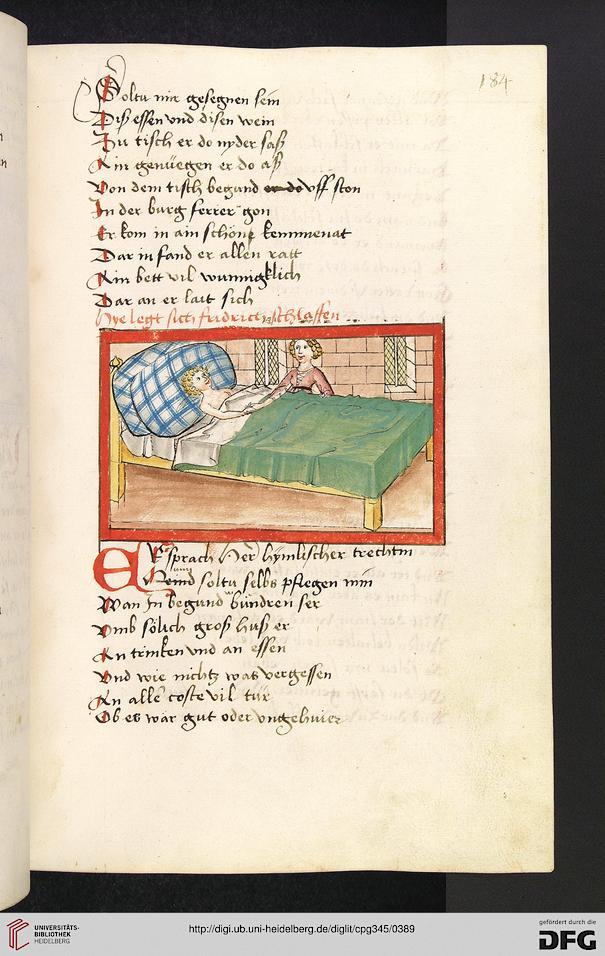 184
Soltu mir gesegnen sein
Diß essen vnd disen wein
Zu tisch er do nyder saß
Ain genüegen er do aß
Von dem tisch begund er do vff ston
In der burg ferrer gon
Er kom in ain schöne kemmenat
Dar in fand er allen ratt
Ain bett vil wunnigklich
Dar an er lait sich
Hye legt sich fridrich schlaffen
ER sprach Herr hymlischer trechtin
soltu selbs pflegen min
Wan In begund wundren ser
Vmb sölich groß huß er
An trinken vnd an essen
Vnd wie nichtz was vergessen
An alle coste vil tür
Ob es wär gut oder vngehuier
UNIVERSITÄTS-
BIBLIOTHEK
HEIDELBERG
http://digi.ub.uni-heidelberg.de/diglit/cpg345/0389
gefördert durch die
DFG